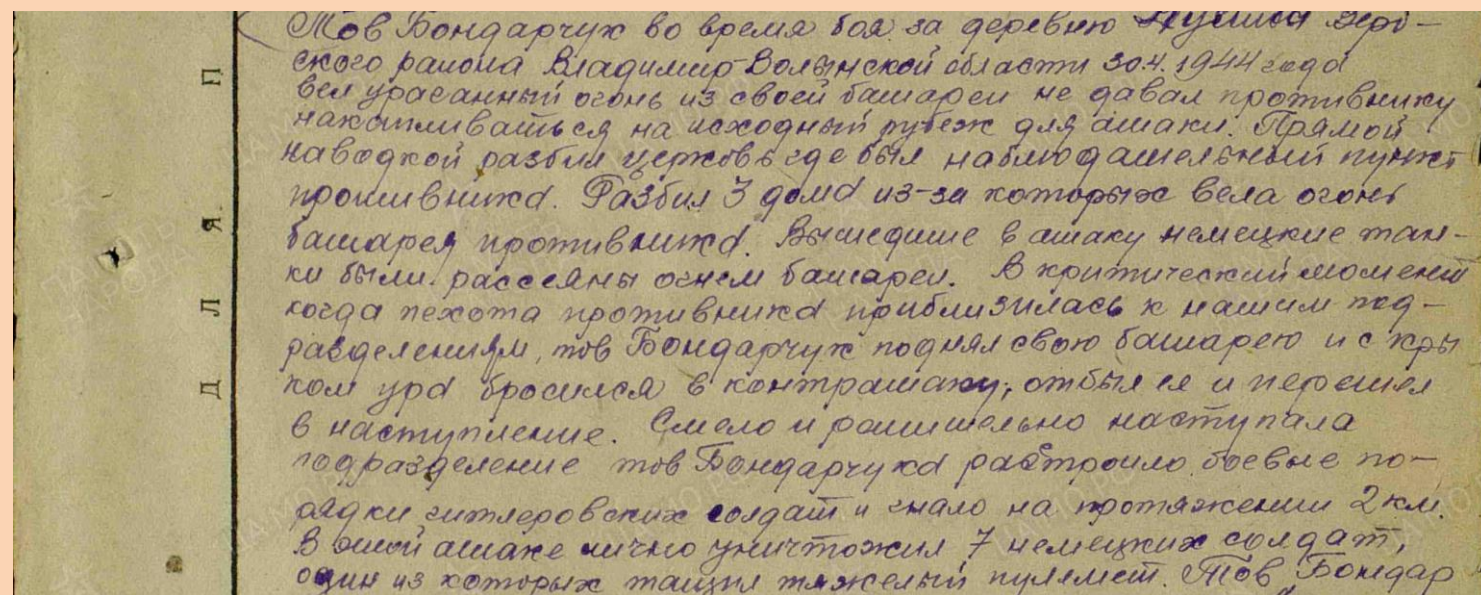 Тов Бондарчук во время боя за деревню
ского района Владимир-Волынской области 30.4.1944 года
вел ураганный огонь из своей батареи не давал противнику
накапливаться на исходный рубеж для атаки. Прямой
наводкой разбил церковь где был наблюдательный пункт
противника. Разбил 3 дома из-за которых вела огонь
батарея противника. Вышедшие в атаку немецкие тан-
ки были рассеяны огнем батареи. В критический момент
когда пехота противника приблизилась к нашим под-
разделениям, тов Бондарчук поднял свою батарею и с кри
ком ура бросился в контратаку, отбыл ея и перешел
в наступление. Смело и рашительно наступала
подразделение тов Бондарчука растроило боевые по-
рядки гитлеровских солдат и гнало на протяжении 2 км.
В этой атаке лично уничтожил 7 немецких солдат,
один из которых тащил тяжелый пулемет. Тов Бондар
Д Л Я П